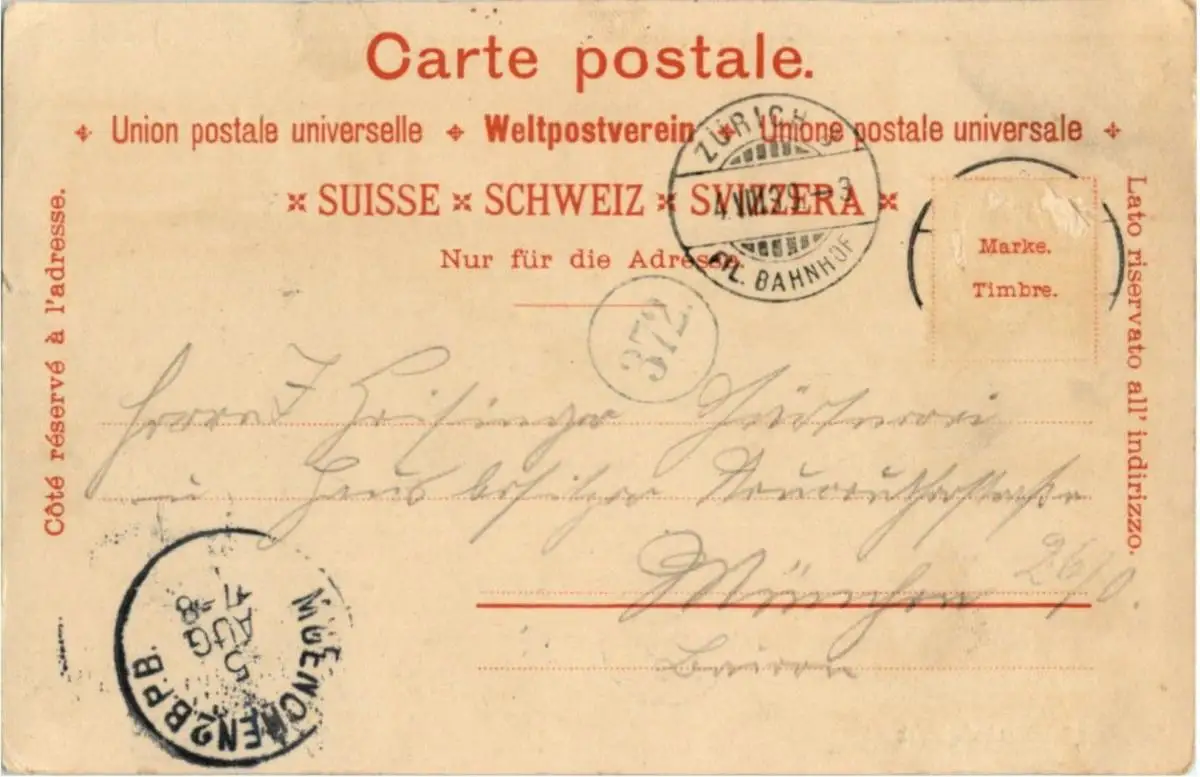 Carte postale.
✢ Union postale universelle ✢ Weltpostverein ✢ Unione postale universale ✢
SUISSE × SCHWEIZ × SVIZZERA
Nur für die Adresse.
Côté réservé à l'adresse.
Lato riservato all' indirizzo.
Marke.
Timbre.
ZÜRICH
4.VIII.99.–3
FIL. BAHNHOF
372.
Herrn J
u. Hausbesitzer Neureutherstraße
München 26/0.
Baiern
MUENCHEN 2 B.P.B.
5
AUG